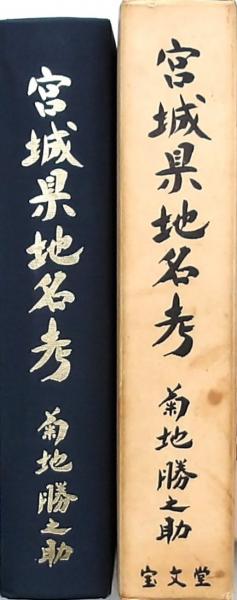 宮城県地名考
菊地勝之助
宮城県地名考
菊地勝之助
宝文堂